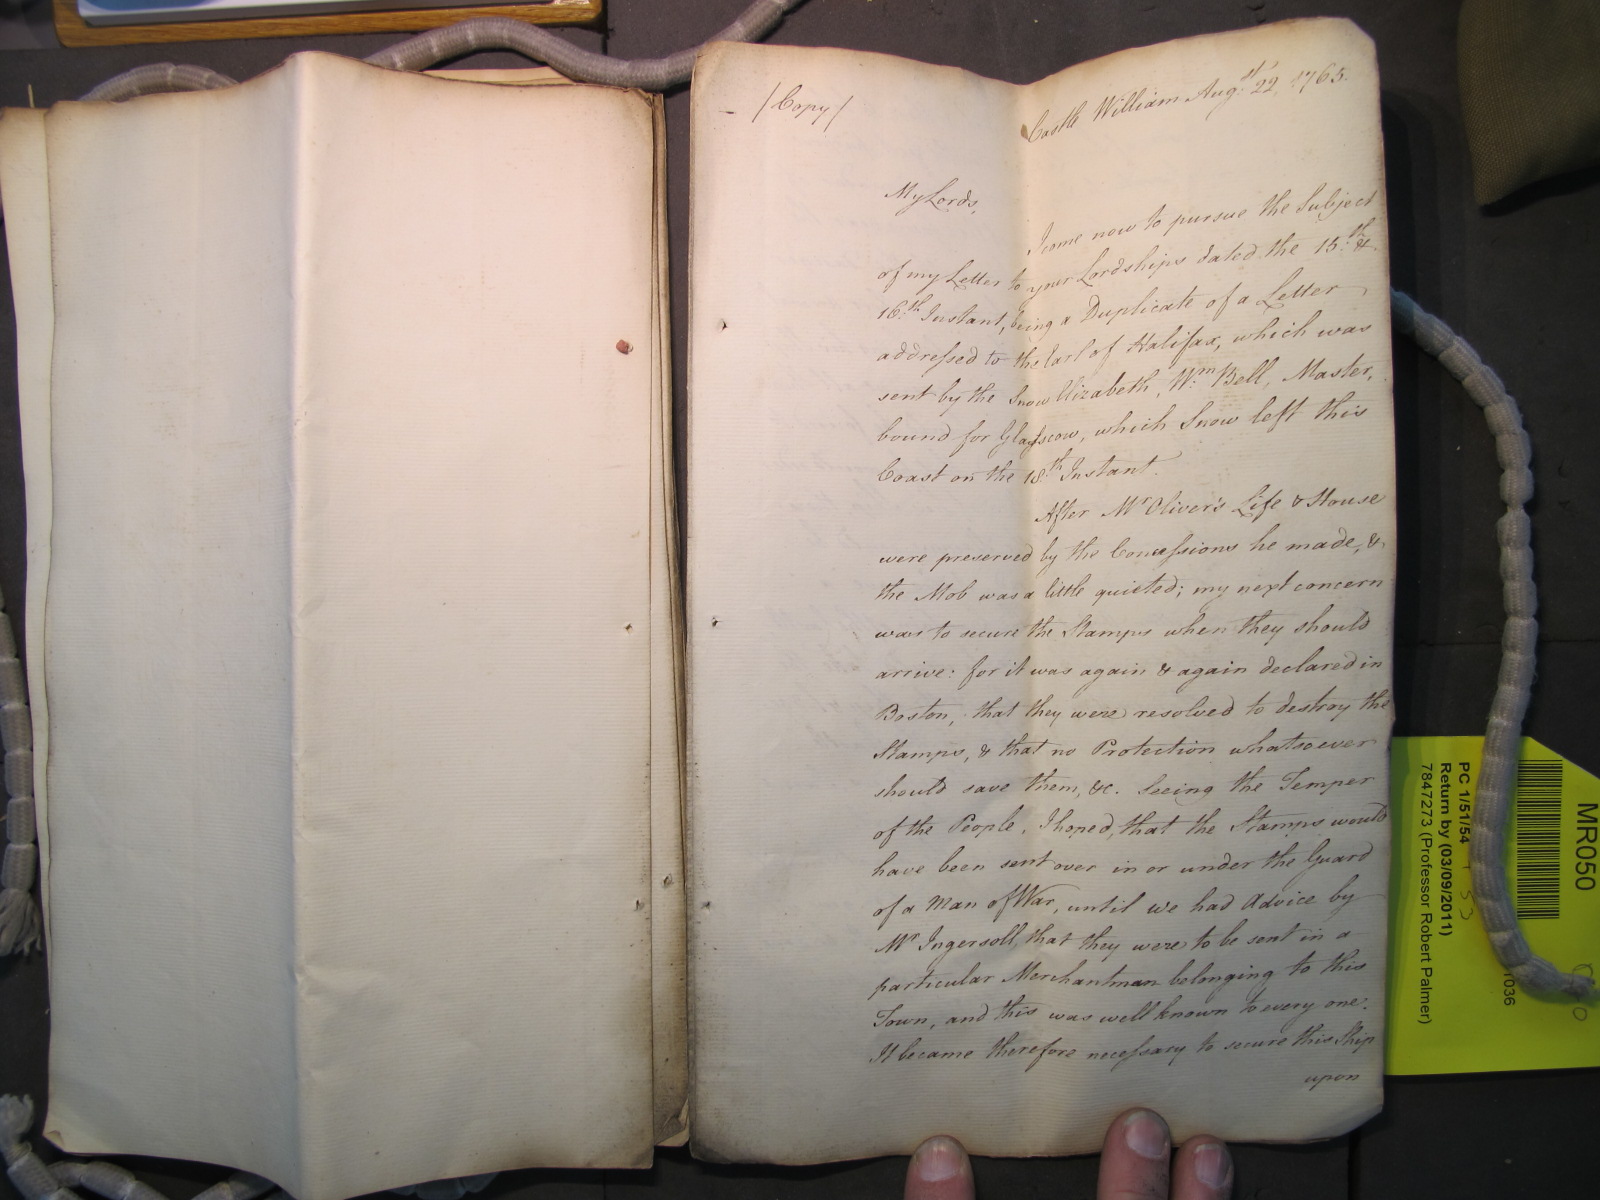 /Copy/
Castle William Aug.st 22, 1765.
My Lords,
I come now to pursue the Subject
of my Letter to your Lordships dated the 15.th &
16.th Instant, being a Duplicate of a Letter
addressed to the Earl of Halifax, which was
sent by the Snow Elizabeth, W.m Bell, Master,
bound for Glasscow, which Snow left this
Coast on the 18.th Instant.
After Mr Oliver's Life & House
were preserved by the Concessions he made, &
the Mob was a little quieted; my next concern
was to secure the Stamps when they should
arrive: for it was again & again declared in
Boston, that they were resolved to destroy the
Stamps, & that no Protection whatsoever
should save them, &c. Seeing the Temper
of the People, I hoped, that the Stamps would
have been sent over in or under the Guard
of a Man of War, until we had Advice by
Mr Ingersoll, that they were to be sent in a
particular Merchantman belonging to this
Town, and this was well known to every one.
It became therefore necessary to secure this Ship
upon
MR050
PC 1/51/54
Return by (03/09/2011)
7847273 (Professor Robert Palmer)
1036
53